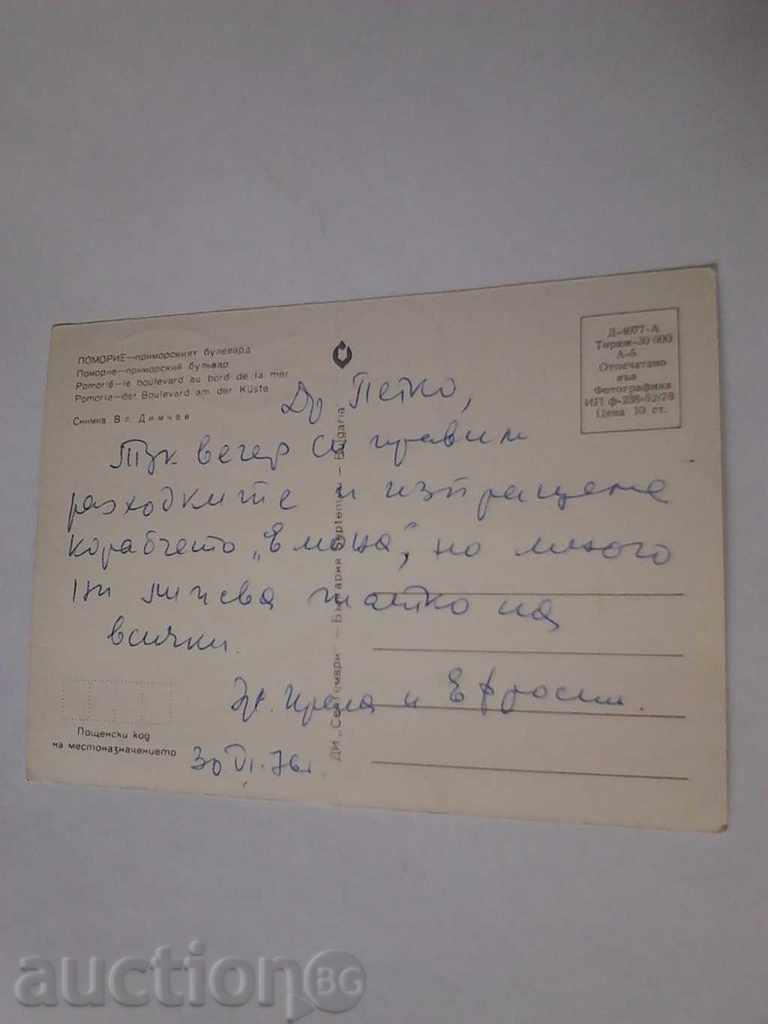 ПОМОРИЕ—приморският булевард
Поморие—приморский бульвар
Pomorié—le boulevard au bord de la mer
Pomorie—der Boulevard am der Küste
Снимка Вл. Димчев
Д-4977-А
Тираж-30 000
А-6
Отпечатано
във
Фотографика
ИП ф-238-52/76
Цена 10 ст.
Др Петко,
Тук вечер си правим
разходките и изпращаме
корабчето „Емона", но много
ни липсва
всички.
и Ефросим.
30 VI. 76 г.
Пощенски код
на местоназначението
ДИ „Септември" — България Septemvri — Bulgaria
auctionBG